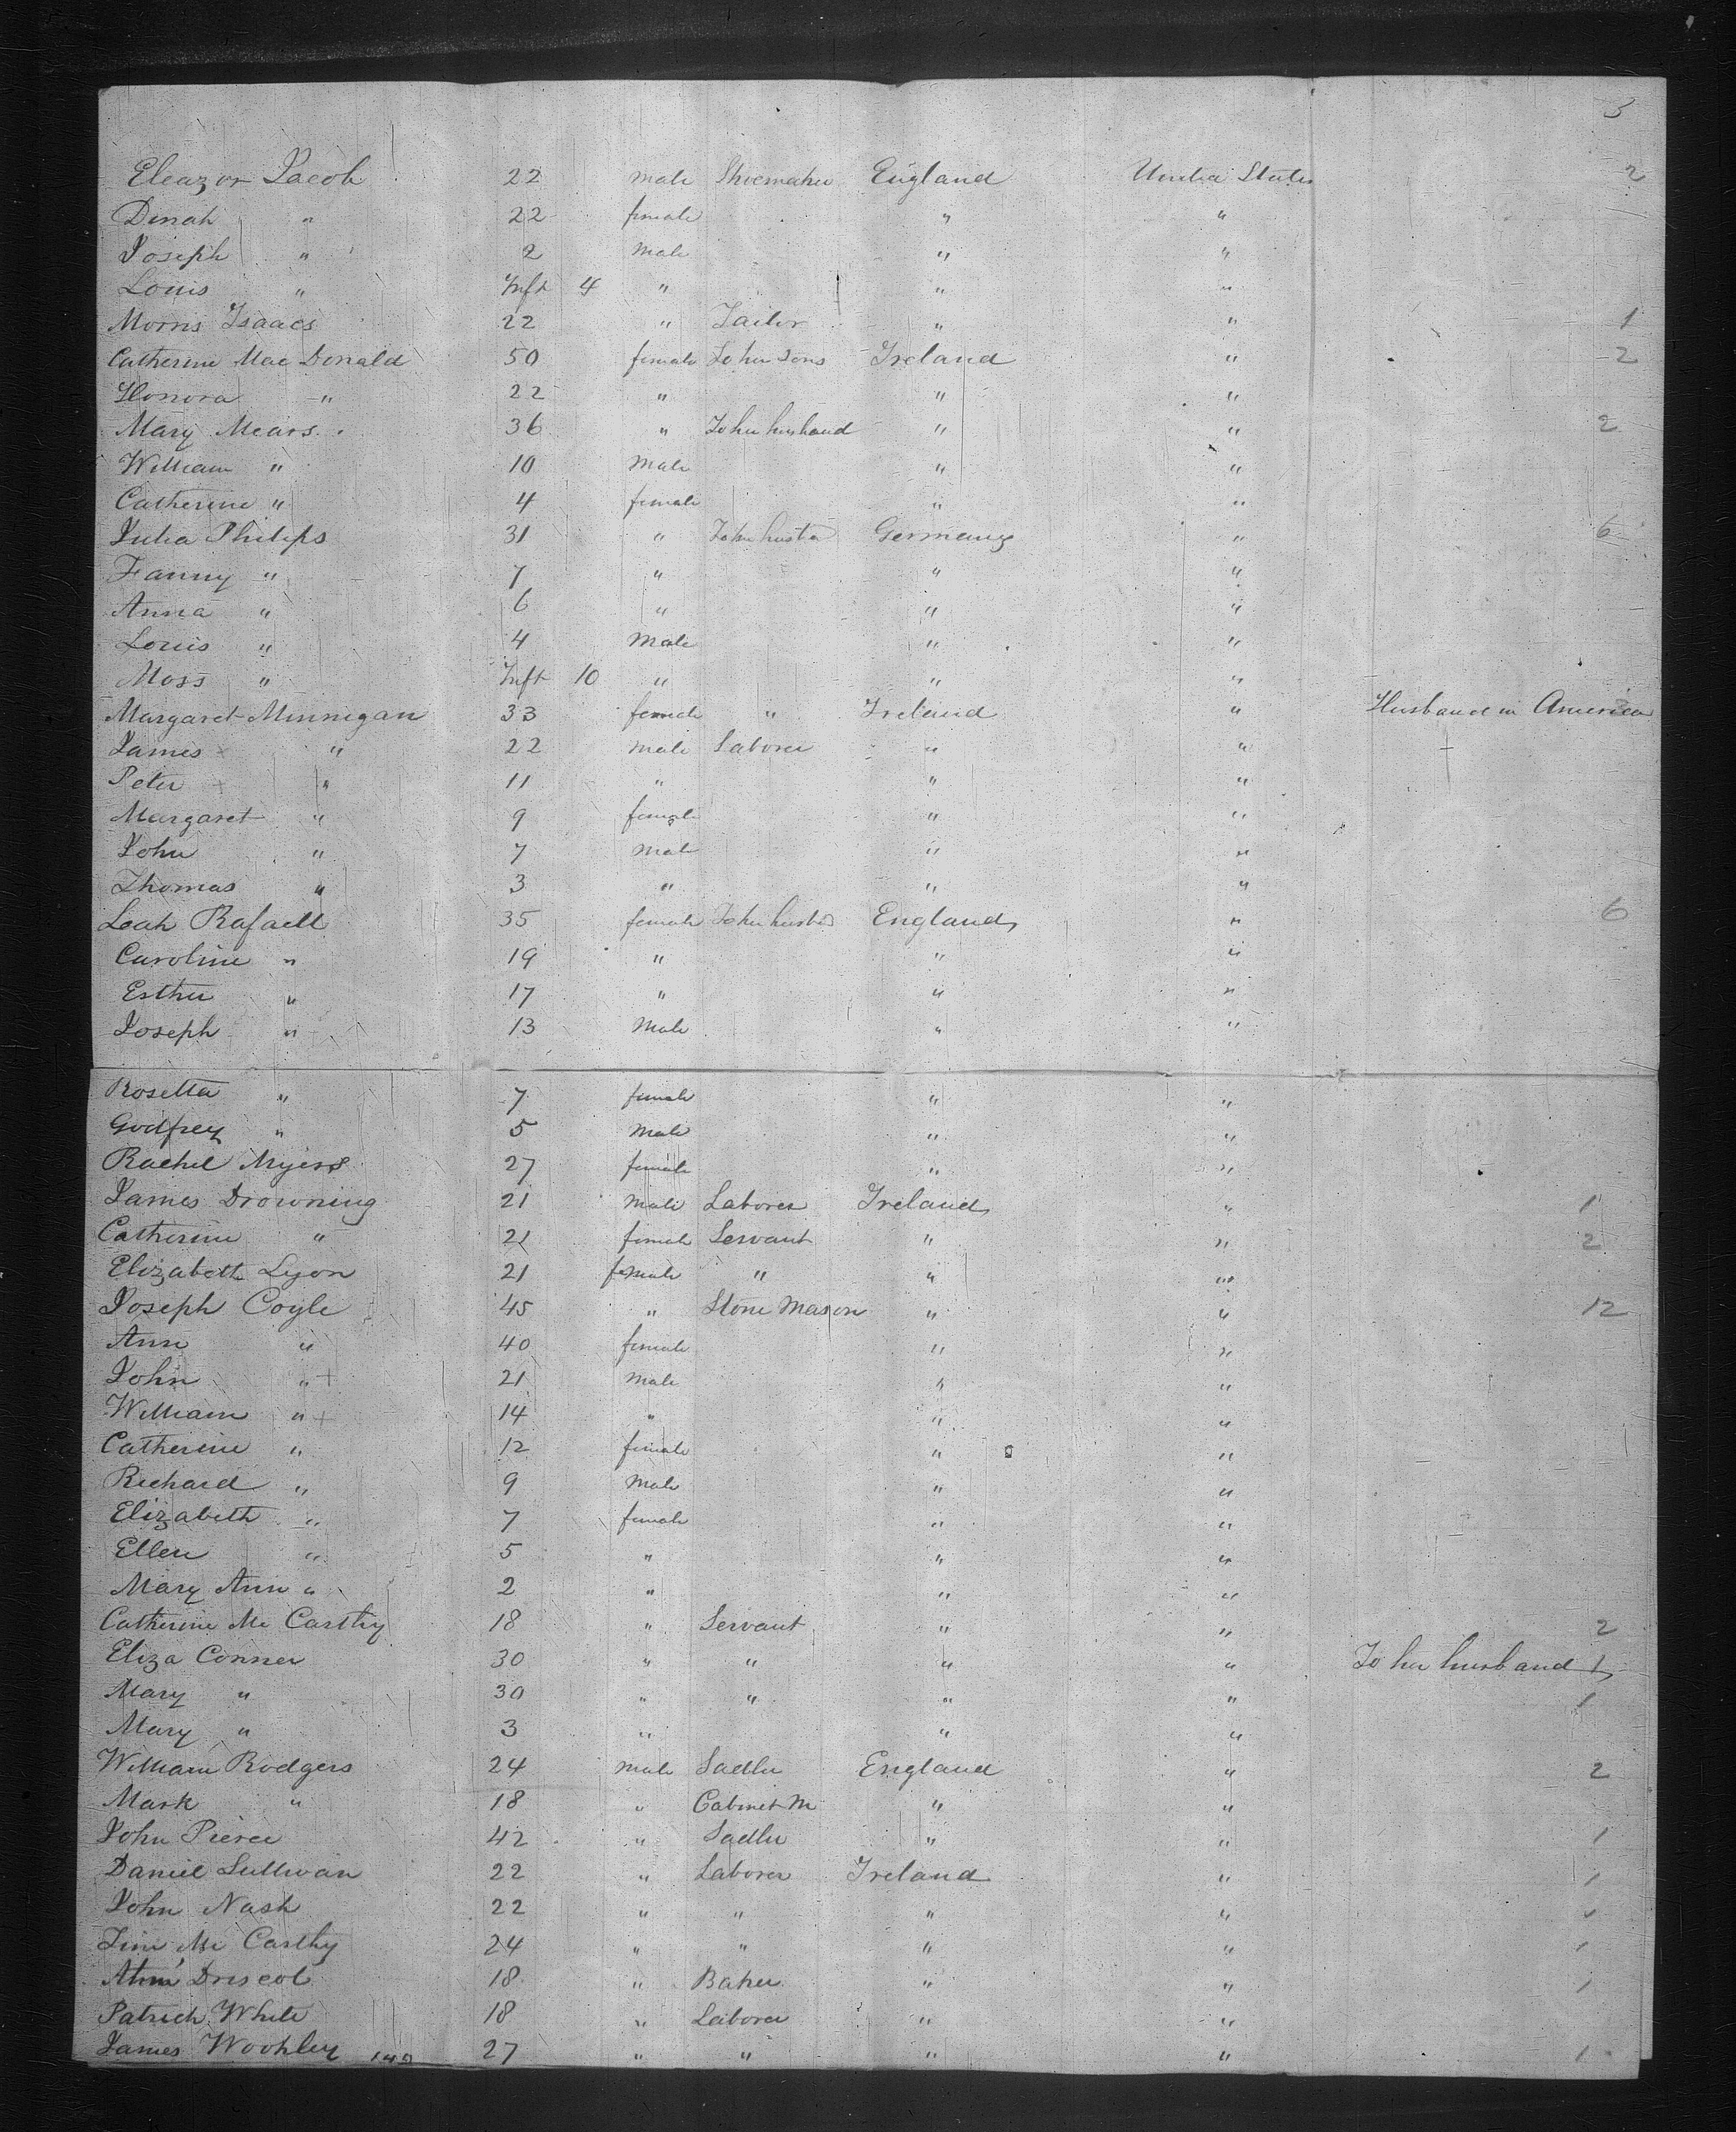 3
Eleazor Jacob 22 male Shoemaker England United States 2
Dinah " 22 female " "
Joseph " 2 Male " "
Louis " Inft 4 " " "
Morris Isaacs 22 " Tailor " " 1
Catherine Mac Donald 50 female To her Sons Ireland " 2
Honora " 22 " " "
Mary Mears 36 " To her husband " " 2
William " 10 Male " "
Catherine " 4 female " "
Julia Philips 31 " To her husbd Germany " 6
Fanny " 7 " " "
Anna " 6 " " "
Louis " 4 Male " "
Moss " Inft 10 " " "
Margaret Minnigan 33 female " Ireland " Husband in America
James " 22 male Laborer " "
Peter " 11 " " "
Margaret " 9 female " "
John " 7 Male " "
Thomas " 3 " " "
Leah Rafaell 35 female To her husbd England " 6
Caroline " 19 " " "
Esther " 17 " " "
Joseph " 13 Male " "
Rosetta " 7 female " "
Godfrey " 5 Male " "
Rachel Myers 27 female " "
James Drowning 21 Male Laborer Ireland " 1
Catherine " 21 female Servant " " 2
Elizabeth Lyon 21 female " " "
Joseph Coyle 45 " Stone Mason " " 12
Ann " 40 female " "
John " + 21 Male " "
William " + 14 " " "
Catherine " 12 female " "
Richard " 9 Male " "
Elizabeth " 7 female " "
Ellen " 5 " " "
Mary Ann " 2 " " "
Catherine Mc Carthy 18 " Servant " " 2
Eliza Conner 30 " " " " To her husband 1
Mary " 30 " " " " 1
Mary " 3 " " "
William Rodgers 24 Male Sadler England " 2
Mark " 18 " Cabinet M " "
John Pierce 42 " Sadler " " 1
Daniel Sullivan 22 " Laborer Ireland " 1
John Nash 22 " " " " 1
Tim Mc Carthy 24 " " " " 1
Driscol 18 " Baker " " 1
Patrick White 18 " Laborer " "
James Woohley 27 " " " " 1